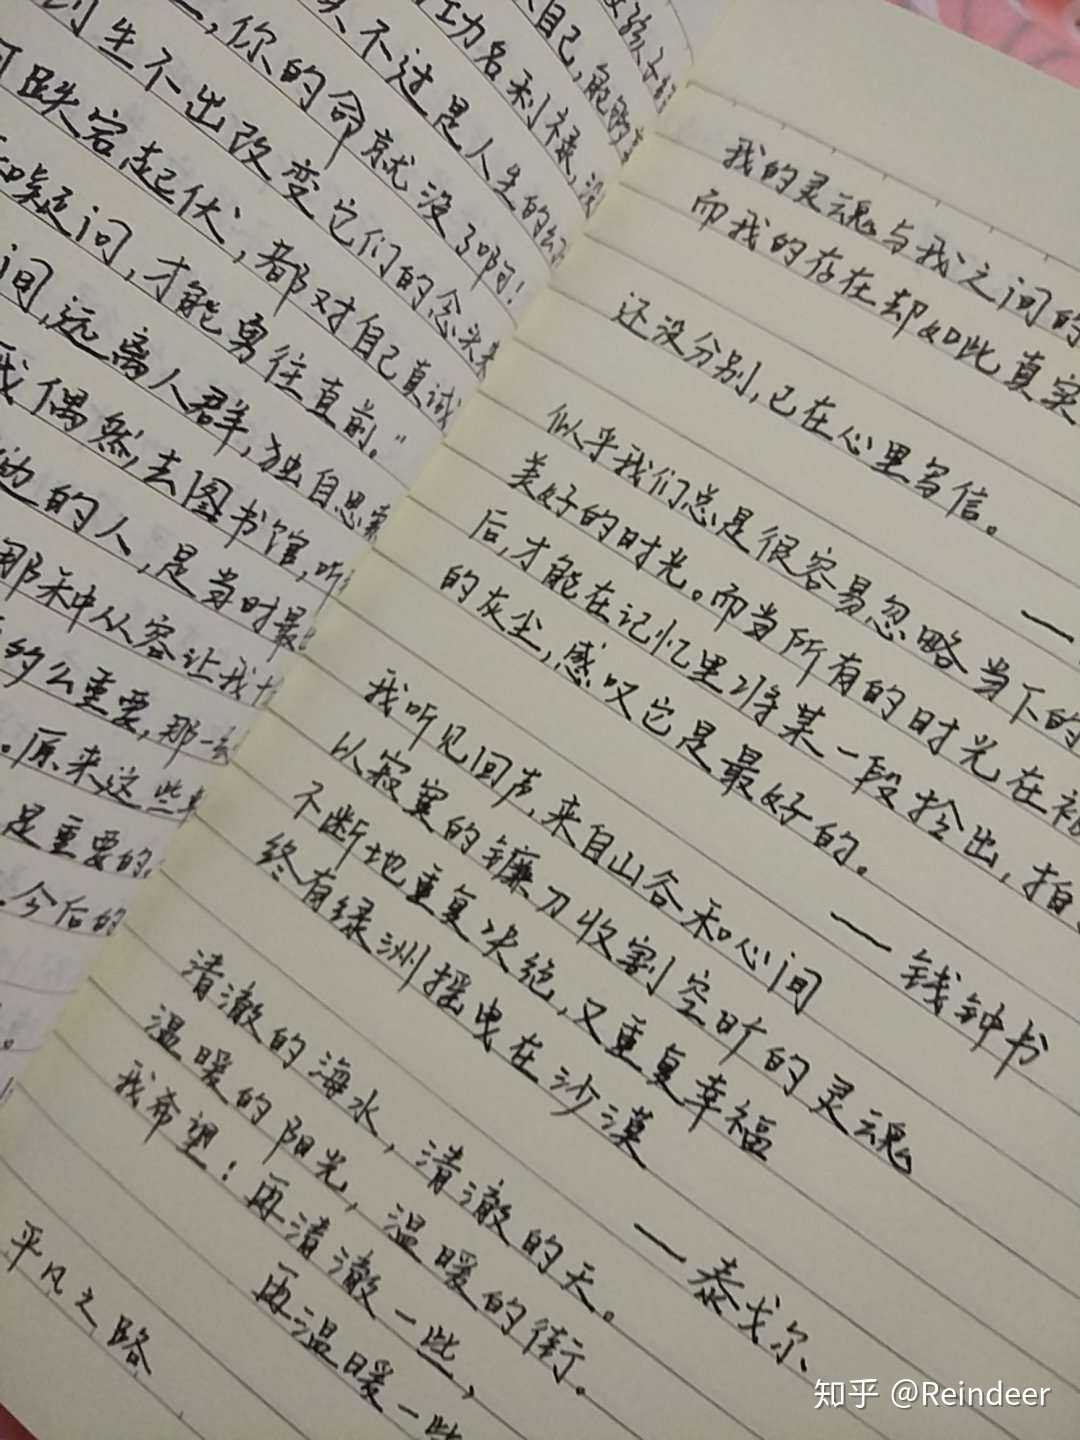 孩子
自己,能够
功名利禄,没
头不过是人生的
,你的命就没了啊!
生不出改变它们的念头
跌宕起伏,都对自己真诚
疑问,才能勇往直前。”
间,远离人群,独自思索
我偶然去图书馆,听
边的人,是当时最
那种从容让我
的么重要,那一
。原来这些
是重要的,
今后的
平凡之路
我的灵魂与我之间的
而我的存在却如此真实
还没分别,已在心里写信。
似乎我们总是很容易忽略当下的
美好的时光。而当所有的时光在被
后,才能在记忆里将某一段拾出,拍
的灰尘,感叹它是最好的。
—钱钟书
我听见回声,来自山谷和心间
以寂寞的镰刀收割空旷的灵魂
不断地重复决绝,又重复幸福
终有绿洲摇曳在沙漠
—泰戈尔
清澈的海水,清澈的天。
温暖的阳光,温暖的街。
我希望:再清澈一些,
再温暖一些
知乎 @Reindeer